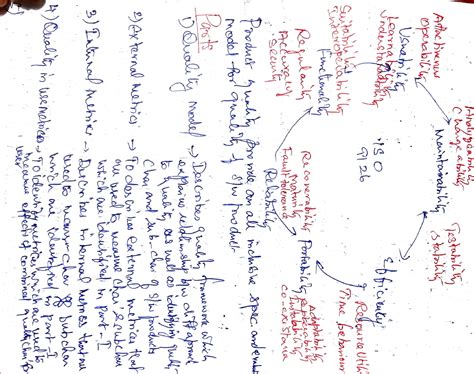 Analysability
Changeability
Testability
Stability
Maintainability
Attractiveness
Operability
Usability
Learnability
Understandability
ISO
9126
Efficiency
Resource Utili
Time behaviour
Suitability
Interoperability
Functionality
Regularity
Accuracy
Security
Recoverability
Maturity
Fault tolerance
Reliability
Portability
Adaptability
Installability
co-existance
Product quality provide an all inclusive spec and
model for quality of S/w product
Parts
1) Quality model → Describes quality framework which
explains relationship b/w diff approach
to quality as well as identifying quality
char and sub char of S/w products
2) external metrics → To describes external metrics that
are used to measure char & subchar
which are identified in part-I
3) Internal metrics → Describes internal metrics that are
used to measure char & subchar
which are identified in part-I
4) Quality in use metrics → To identify metrics which are used to
measure effect of combined quality char for
user